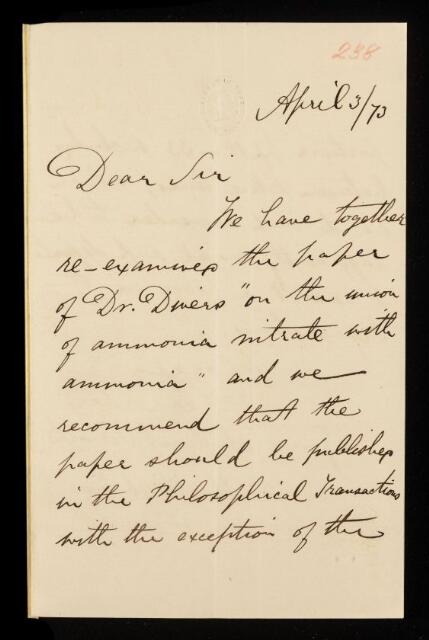 238
April 3/73
Dear Sir
We have together
re-examined the paper
of Dr. Divers "on the union
of ammonia nitrate with
ammonia" and we
recommend that the
paper should be published
in the Philosophical Transactions
with the exception of the